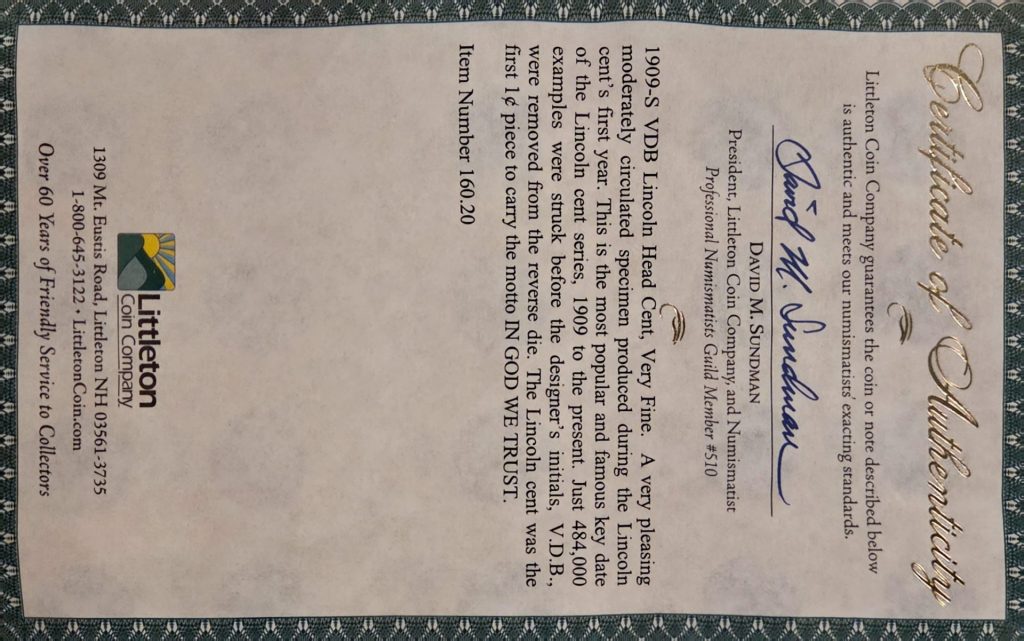 Certificate of Authenticity
Littleton Coin Company guarantees the coin or note described below
is authentic and meets our numismatists' exacting standards.
David M. Sundman
DAVID M. SUNDMAN
President, Littleton Coin Company, and Numismatist
Professional Numismatists Guild Member #510
1909-S VDB Lincoln Head Cent, Very Fine. A very pleasing
moderately circulated specimen produced during the Lincoln
cent's first year. This is the most popular and famous key date
of the Lincoln cent series, 1909 to the present. Just 484,000
examples were struck before the designer's initials, V.D.B.,
were removed from the reverse die. The Lincoln cent was the
first 1¢ piece to carry the motto IN GOD WE TRUST.
Item Number 160.20
Littleton
Coin Company
1309 Mt. Eustis Road, Littleton NH 03561-3735
1-800-645-3122 • LittletonCoin.com
Over 60 Years of Friendly Service to Collectors